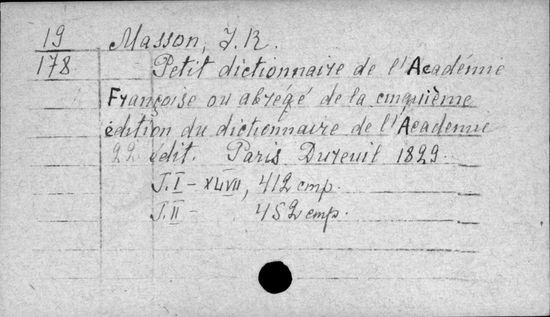 19 Masson, J.R.
178 Petit dictionnaire de l'Académie
Française ou abrégé de la cinquième
édition du dictionnaire de l'Academie
22 édit. Paris Dureuil 1829
T.I - XLVII, 412 cmp.
T.II - 452 cmp.